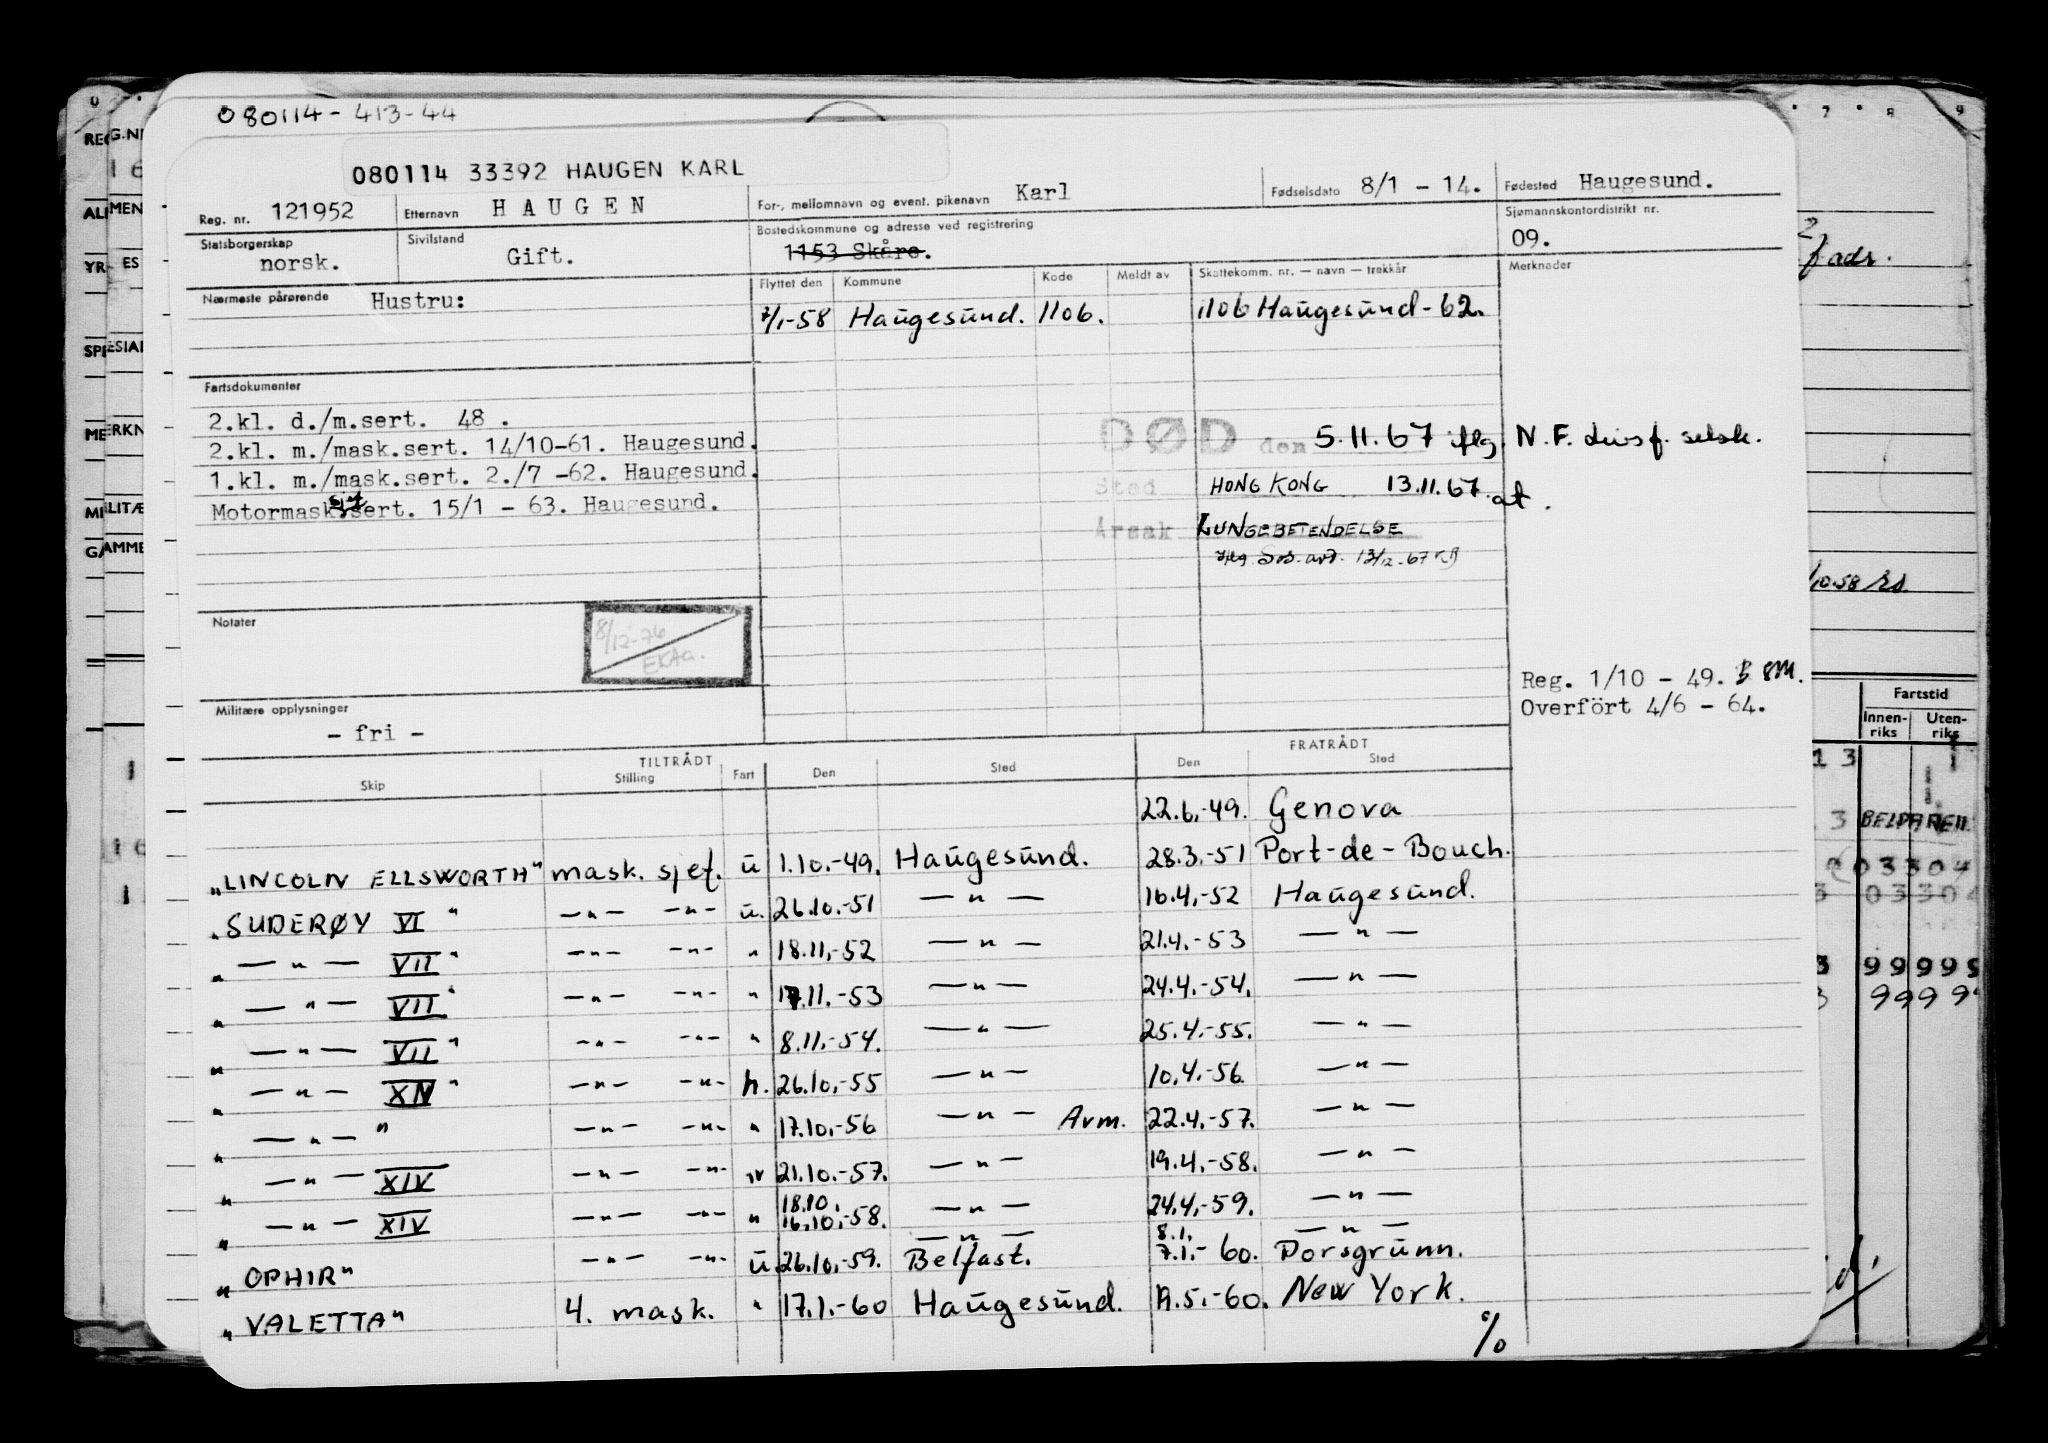 080114-413-44
080114 33392 HAUGEN KARL
Reg. nr. 121952 Etternavn HAUGEN For-, mellomnavn og event. pikenavn Karl Fødselsdato 8/1 - 14. Fødested Haugesund.
Statsborgerskap norsk. Sivilstand Gift. Bostedskommune og adresse ved registrering 1153 Skåre. Sjømannskontordistrikt nr. 09.
Nærmeste pårørende Hustru: Flyttet den Kommune Kode Meldt av Skattekomm. nr. — navn — trekkår Merknader
7/1-58 Haugesund. 1106. 1106 Haugesund-62.
Fartsdokumenter
2.kl. d./m.sert. 48 .
2.kl. m./mask.sert. 14/10-61. Haugesund.
1.kl. m./mask.sert. 2./7 -62. Haugesund.
Motormask.sjef sert. 15/1 - 63. Haugesund.
DØD den 5.11.67 iflg. N.F. livsf. selsk.
Sted HONG KONG 13.11.67 at.
Årsak LUNGEBETENDELSE
iflg. Sos. avd. 13/12-67
Notater
8/12-76
EKAa.
Militære opplysninger
- fri -
Reg. 1/10 - 49.
Overfört 4/6 - 64.
TILTRÅDT FRATRÅDT
Skip Stilling Fart Den Sted Den Sted
22.6.-49. Genova
"LINCOLN ELLSWORTH" mask. sjef. u 1.10.-49. Haugesund. 28.3.-51 Port-de-Bouch.
"SUDERØY VI" —"— —"— u. 26.10.-51 —"— 16.4.-52 Haugesund.
"—"— VII" —"— —"— " 18.11.-52 —"— 21.4.-53 —"—
"—"— VII" —"— —"— " 17.11.-53 —"— 24.4.-54. —"—
"—"— VII" —"— —"— " 8.11.-54. —"— 25.4.-55. —"—
"—"— XIV" —"— —"— h. 26.10.-55 —"— 10.4.-56. —"—
"—"—" —"— —"— " 17.10.-56 —"— Avm. 22.4.-57. —"—
"—"— XIV —"— —"— " 21.10.-57. —"— 19.4.-58. —"—
"—"— XIV —"— —"— " 18.10. 16.10.-58. —"— 24.4.-59. —"—
"OPHIR" —"— —"— u. 26.10.-59. —"— Belfast. 8.1. 7.1.-60. —"— Porsgrunn.
"VALETTA" 4. mask. " 17.1.-60 Haugesund. 19.5.-60. New York.
%
7 8 9
f adr.
/10.58
Fartstid
Innen-riks Uten-riks